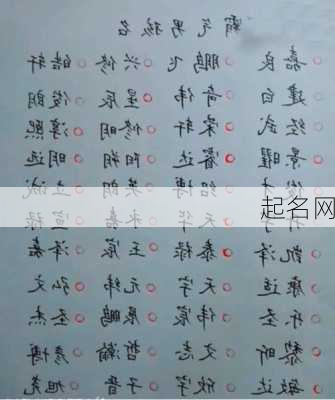 霸气男孩名
嘉良 鹏飞 兴修 皓轩
建白 奇伟 星辰 俊朗
经武 荣轩 修明 淳熙
景曜 睿达 阳朔 明远
绍博 英朗 立诚
起名网
天华 永嘉
凯泽 泰禄 玉宸 泽嘉
康适 天宇 元纬 弘文
乐圣 伟宸 鹏 圣杰
黎昕 文志 哲瀚 彦博
敏达 欣宇 子晋 旭尧